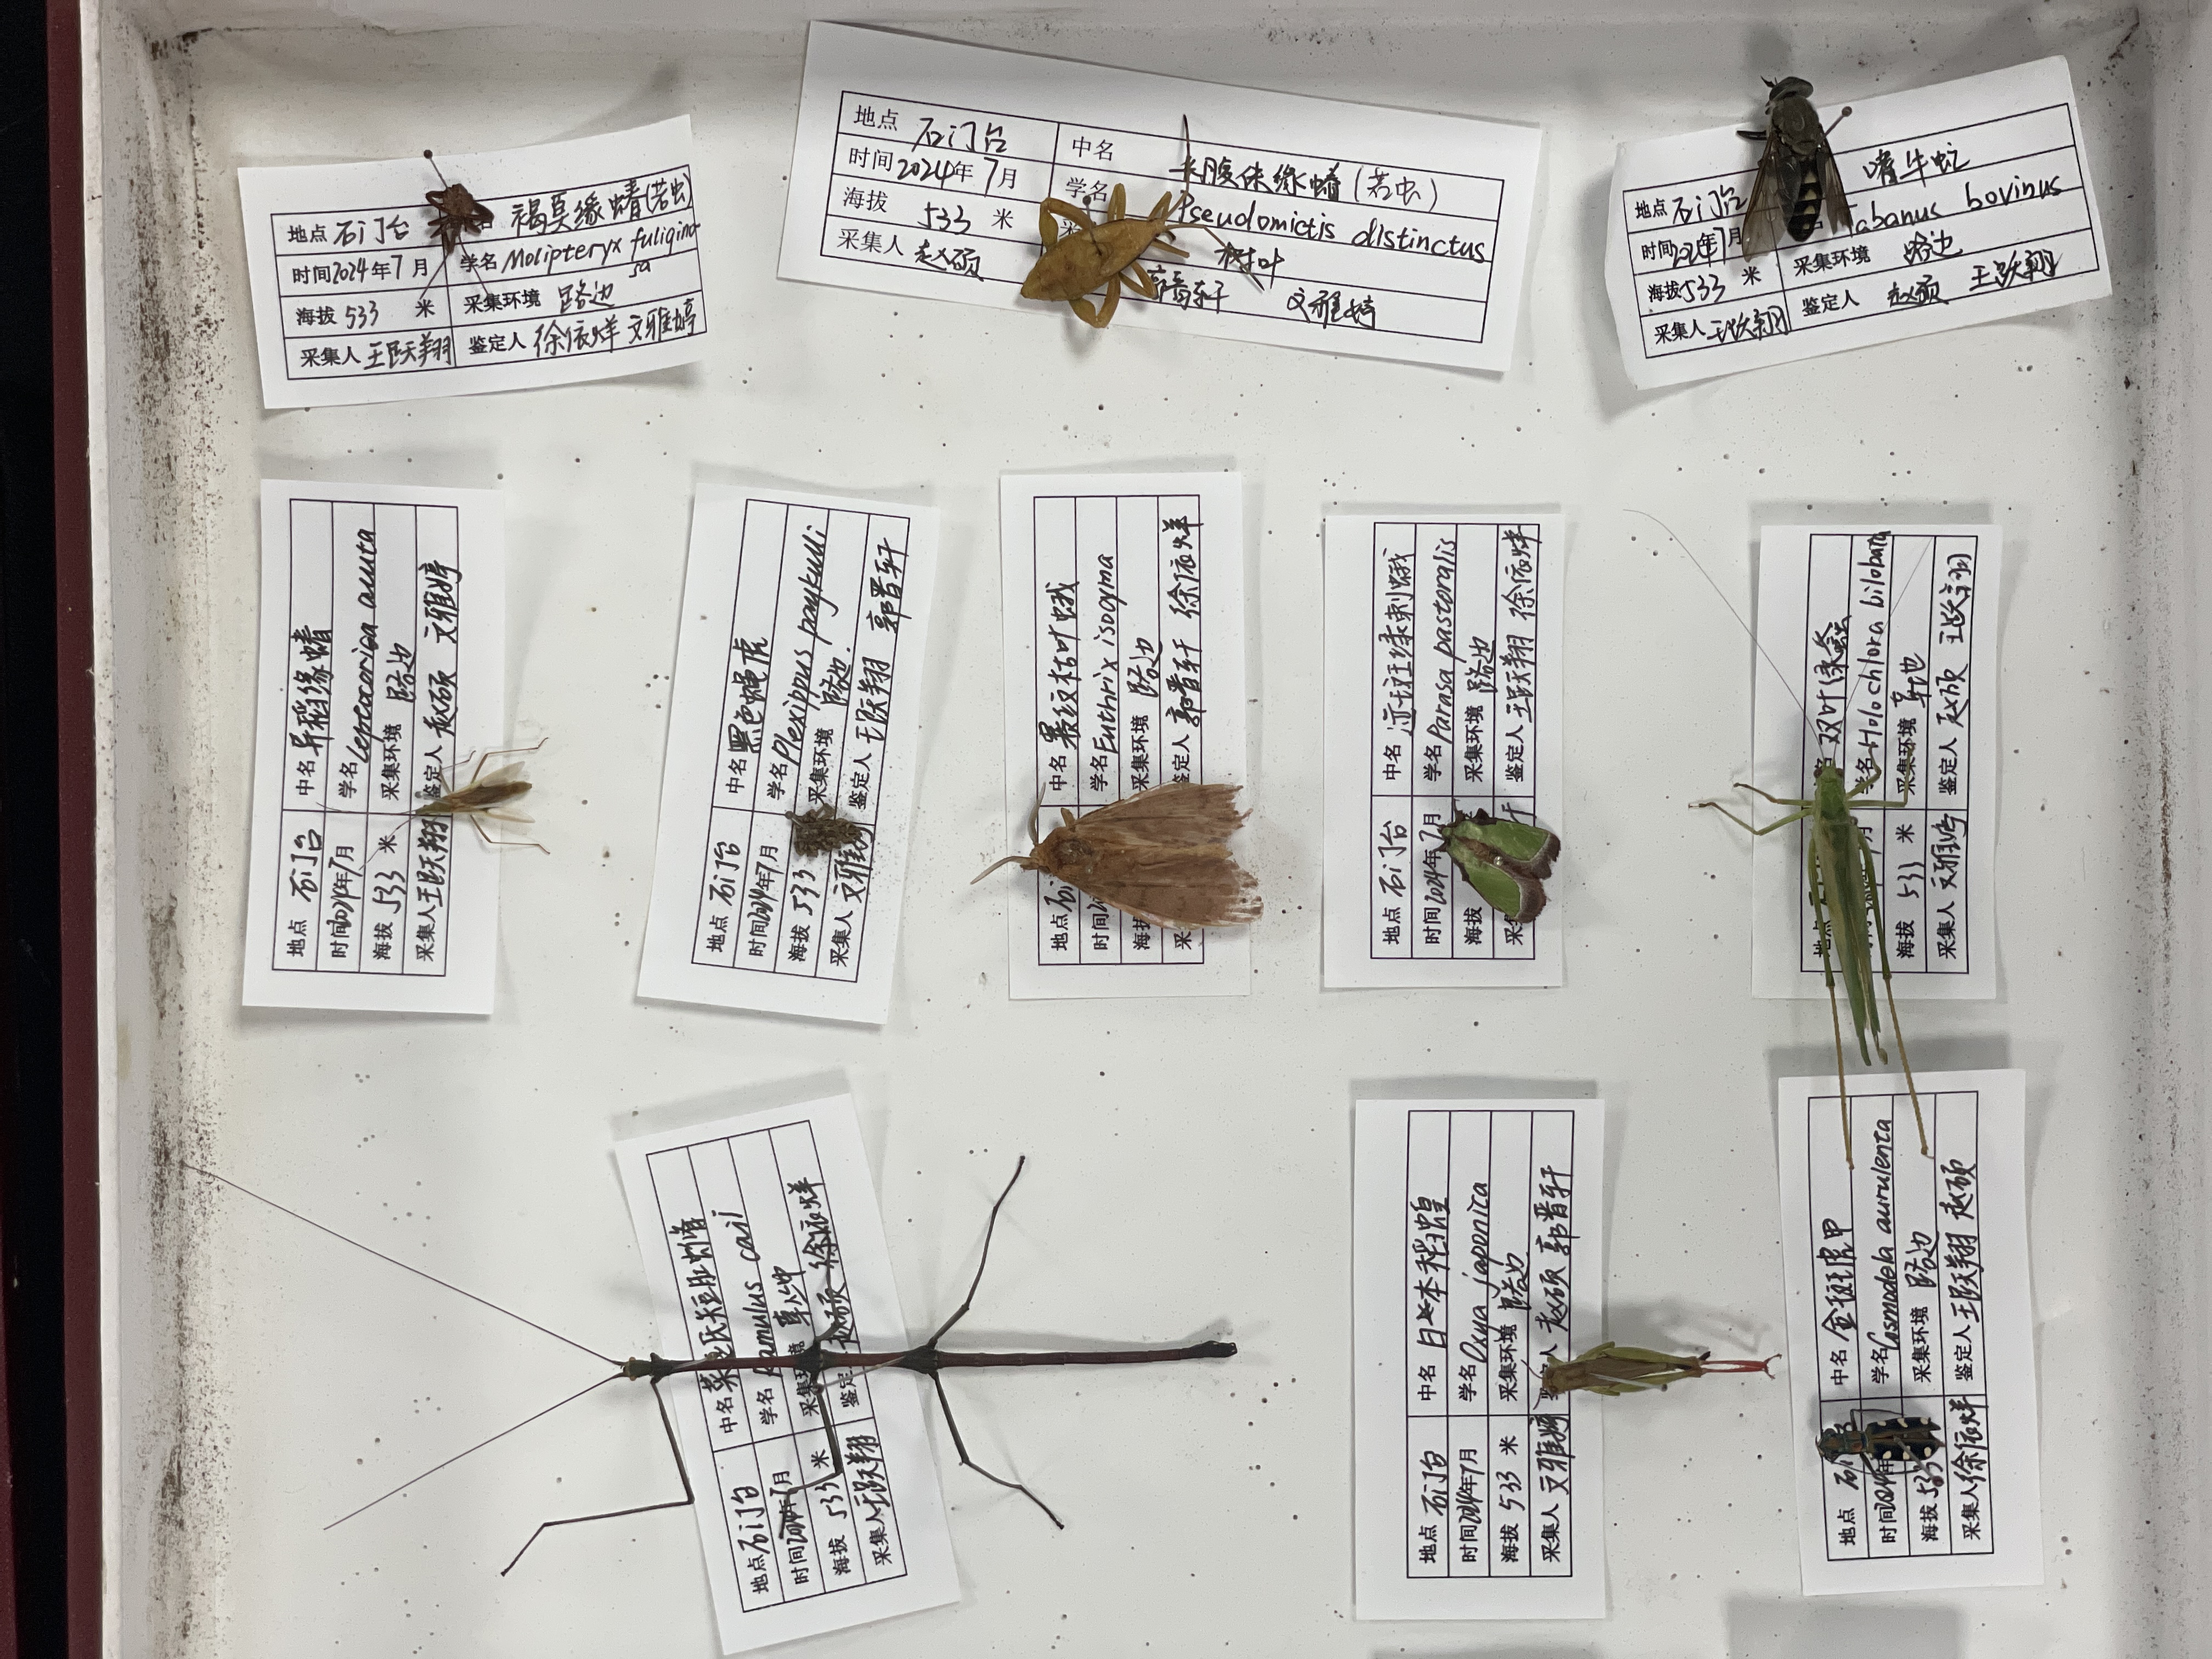 地点 石门台 名 褐莫缘蝽(若虫)
时间2024年7月 学名 Molipteryx fuligino
sa
海拔 533 米 采集环境 路边
采集人 王跃翔 鉴定人 徐依烊 文雅婷
地点 石门台 中名 侎缘蝽(若虫)
时间2024年7月 学名 Pseudomictis distinctus
海拔 533 米 采 树叶
采集人 赵硕 郭晋轩 文雅婷
地点 石门台 嗜牛虻
时间 年7月 abanus bovinus
海拔533 米 采集环境 路边
采集人 王跃翔 鉴定人 赵硕 王跃翔
地点 石门台 中名 异稻缘蝽
时间2024年7月 学名 Leptocorisa acuta
海拔 533 米 采集环境 路边
采集人王跃翔 鉴定人 赵硕 文雅婷
地点 石门台 中名 黑色蝇虎
时间2024年7月 学名 Plexippus paykulli
海拔 533 采集环境 路边.
采集人 文雅 鉴定人 王跃翔 郭晋轩
地点 石 中名 纹枯叶蛾
时间20 学名 Euthrix isocyma
海拔 采集环境 路边
采 鉴定人 郭晋轩 徐依烊
地点 石门台 中名 迹斑绿刺蛾
时间2024年7月 学名 Parasa pastoralis
海拔 采集环境 路边
采 鉴定人 王跃翔 徐依烊
名 双叶绿螽
月 学名 Holochlora bilobata
海拔 533 米 采集环境 草地
采集人 文雅婷 鉴定人 赵硕 王跃翔
地点 石门台 中名 氏短肛䗛
时间2024年7月 学名 Ramulus caii
海拔 533 米 采集环境
采集人 王跃翔 鉴定 赵硕 徐依烊
地点 石门台 中名 日本稻蝗
时间2024年7月 学名 Oxya japonica
海拔 533 米 采集环境 路边
采集人 文雅婷 人 赵硕 郭晋轩
地点 石 中名 金斑虎甲
时间2024年 学名 Cosmodela aurulenta
海拔 533 采集环境 路边
采集人 徐依烊 鉴定人 王跃翔 赵硕